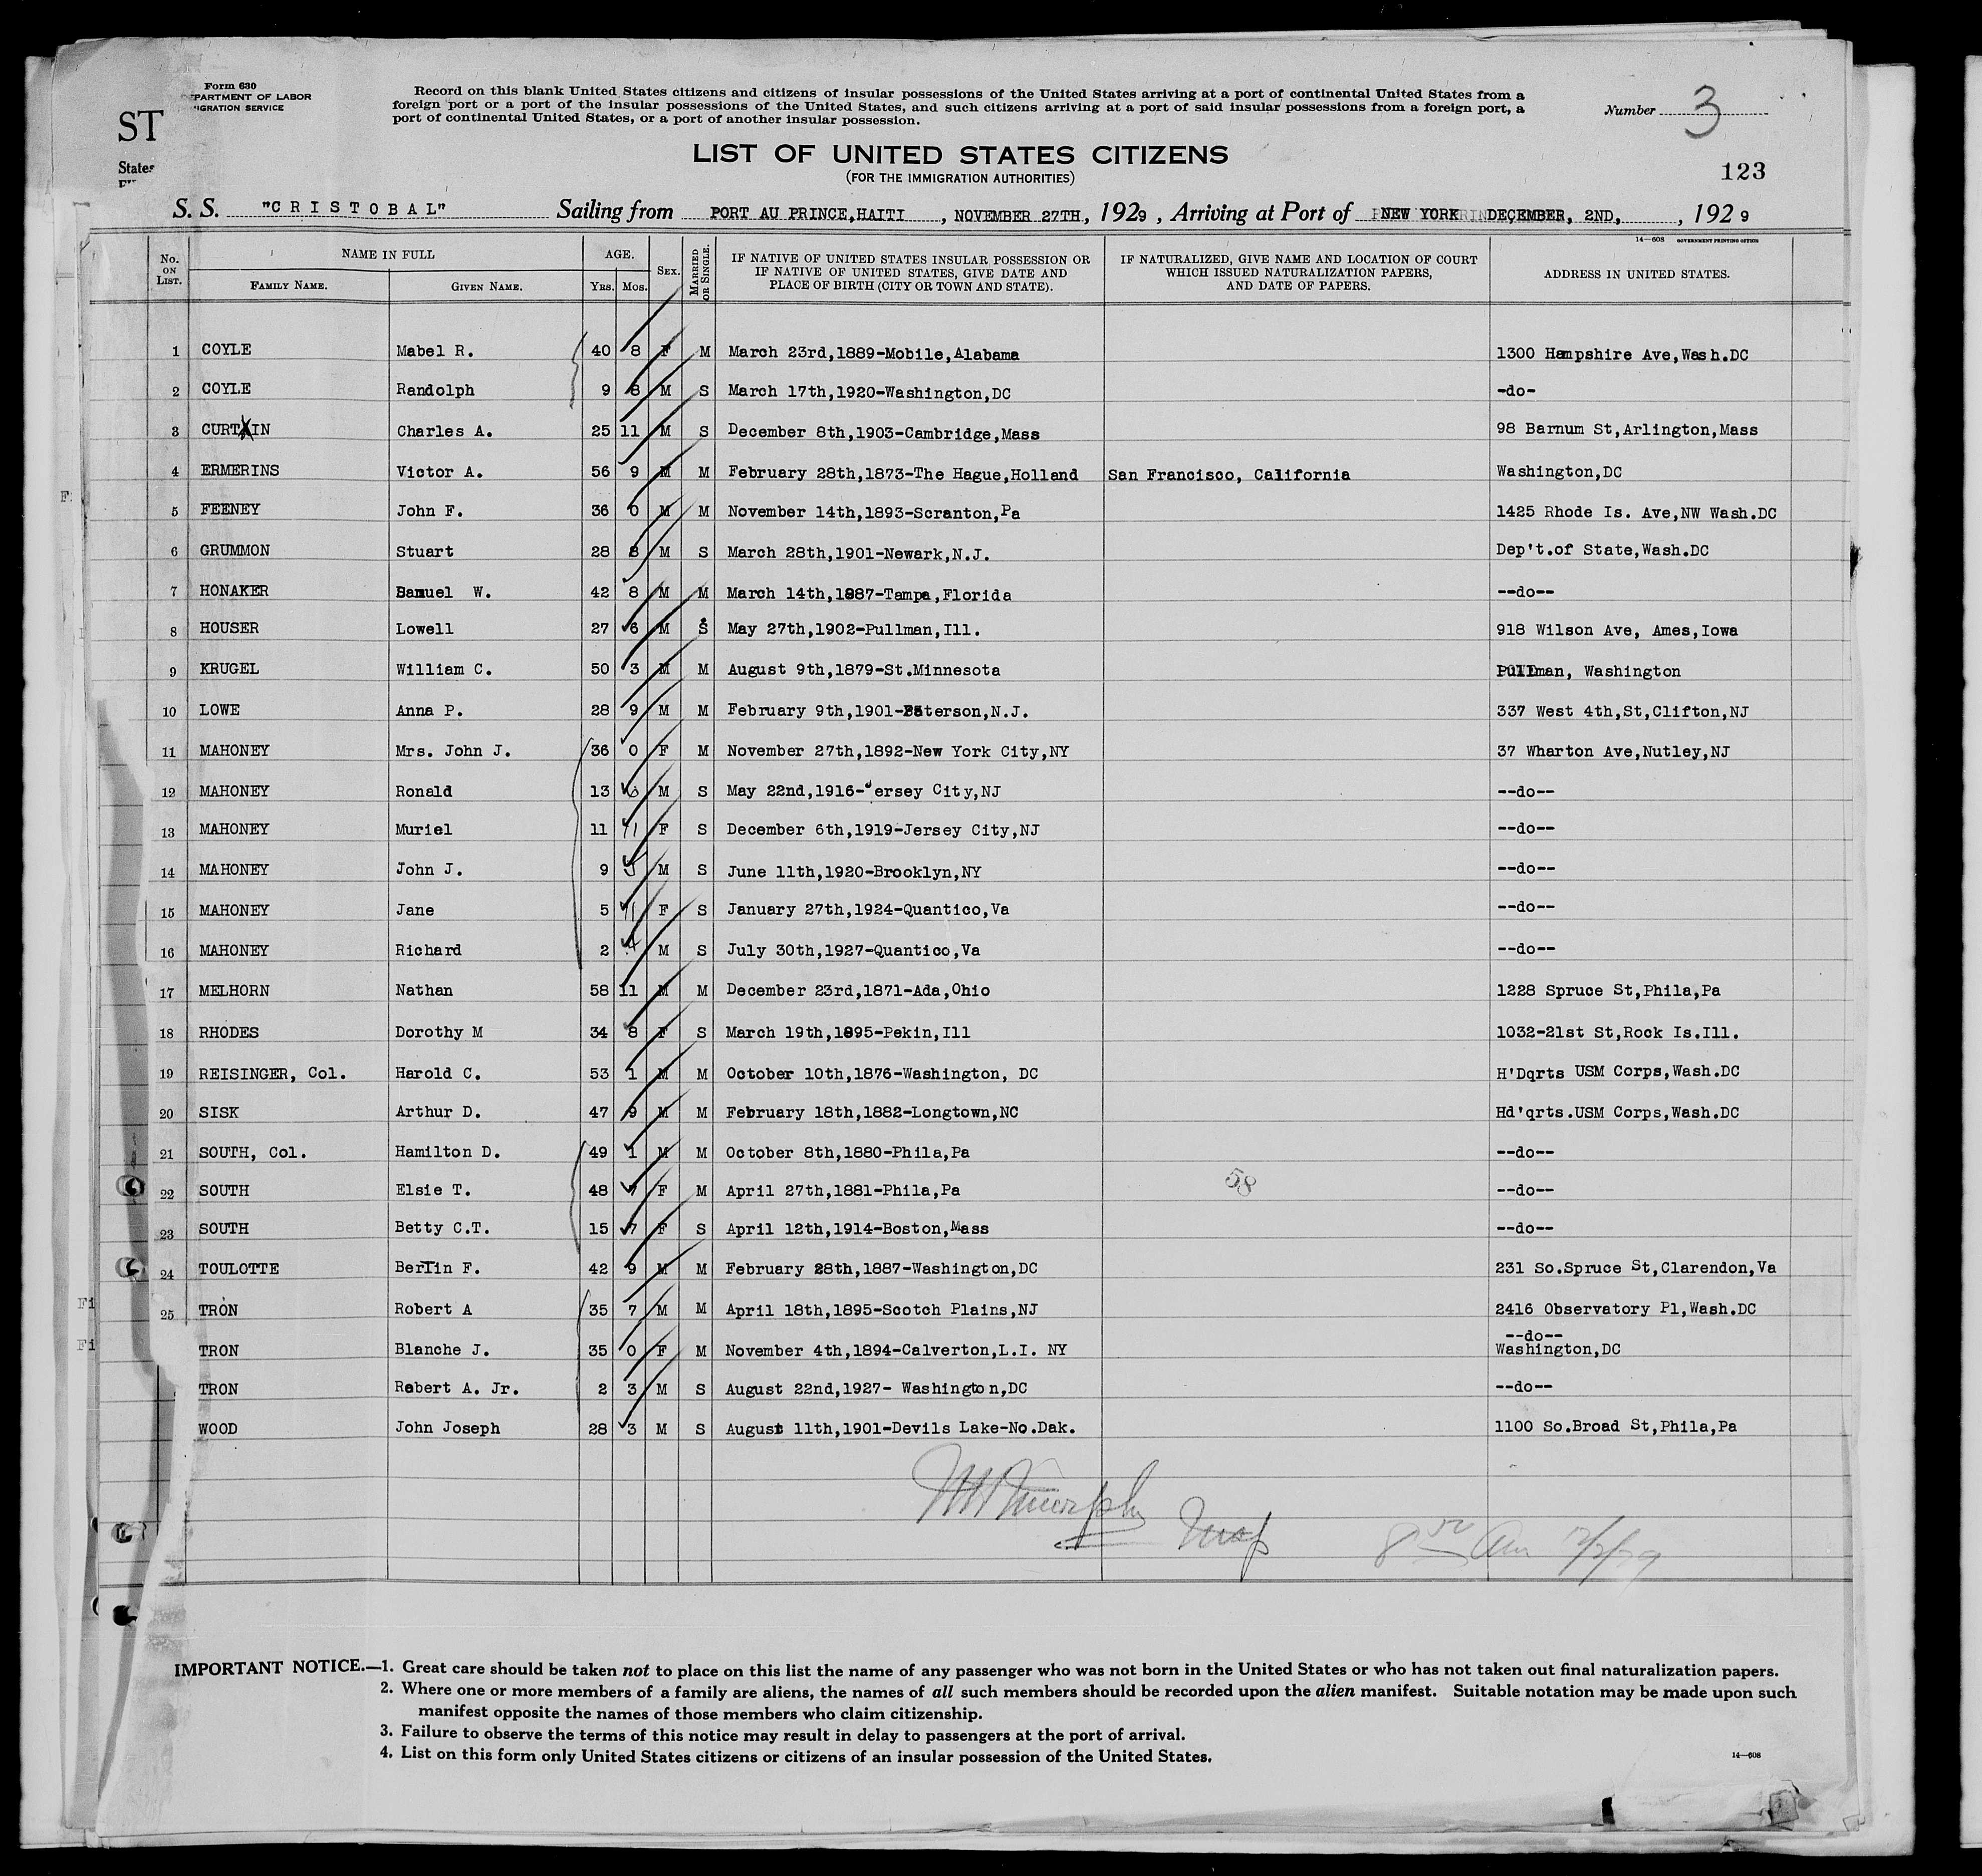 Form 630
PARTMENT OF LABOR
IGRATION SERVICE
ST
States
Record on this blank United States citizens and citizens of insular possessions of the United States arriving at a port of continental United States from a
foreign port or a port of the insular possessions of the United States, and such citizens arriving at a port of said insular possessions from a foreign port, a
port of continental United States, or a port of another insular possession.
Number 3
LIST OF UNITED STATES CITIZENS
(FOR THE IMMIGRATION AUTHORITIES)
123
S. S. "CRISTOBAL" Sailing from PORT AU PRINCE, HAITI, NOVEMBER 27TH, 1929, Arriving at Port of NEW YORK DECEMBER, 2ND, , 1929
14—608 GOVERNMENT PRINTING OFFICE
No. ON LIST. NAME IN FULL FAMILY NAME. GIVEN NAME. AGE. YRS. MOS. SEX. MARRIED OR SINGLE. IF NATIVE OF UNITED STATES INSULAR POSSESSION OR IF NATIVE OF UNITED STATES, GIVE DATE AND PLACE OF BIRTH (CITY OR TOWN AND STATE). IF NATURALIZED, GIVE NAME AND LOCATION OF COURT WHICH ISSUED NATURALIZATION PAPERS, AND DATE OF PAPERS. ADDRESS IN UNITED STATES.
1 COYLE Mabel R. 40 8 F M March 23rd,1889-Mobile,Alabama 1300 Hampshire Ave,Wash.DC
2 COYLE Randolph 9 8 M S March 17th,1920-Washington,DC -do-
3 CURTXIN Charles A. 25 11 M S December 8th,1903-Cambridge,Mass 98 Barnum St,Arlington,Mass
4 ERMERINS Victor A. 56 9 M M February 28th,1873-The Hague,Holland San Francisco, California Washington,DC
5 FEENEY John F. 36 0 M M November 14th,1893-Scranton,Pa 1425 Rhode Is. Ave,NW Wash.DC
6 GRUMMON Stuart 28 8 M S March 28th,1901-Newark,N.J. Dep't.of State,Wash.DC
7 HONAKER Samuel W. 42 8 M M March 14th,1887-Tampa,Florida --do--
8 HOUSER Lowell 27 6 M S May 27th,1902-Pullman,Ill. 918 Wilson Ave, Ames,Iowa
9 KRUGEL William C. 50 3 M M August 9th,1879-St.Minnesota Pullman, Washington
10 LOWE Anna P. 28 9 M M February 9th,1901-Paterson,N.J. 337 West 4th,St,Clifton,NJ
11 MAHONEY Mrs. John J. 36 0 F M November 27th,1892-New York City,NY 37 Wharton Ave,Nutley,NJ
12 MAHONEY Ronald 13 6 M S May 22nd,1916-Jersey City,NJ --do--
13 MAHONEY Muriel 11 11 F S December 6th,1919-Jersey City,NJ --do--
14 MAHONEY John J. 9 5 M S June 11th,1920-Brooklyn,NY --do--
15 MAHONEY Jane 5 11 F S January 27th,1924-Quantico,Va --do--
16 MAHONEY Richard 2 4 M S July 30th,1927-Quantico,Va --do--
17 MELHORN Nathan 58 11 M M December 23rd,1871-Ada,Ohio 1228 Spruce St,Phila,Pa
18 RHODES Dorothy M 34 8 F S March 19th,1895-Pekin,Ill 1032-21st St,Rock Is.Ill.
19 REISINGER, Col. Harold C. 53 1 M M October 10th,1876-Washington, DC H'Dqrts USM Corps,Wash.DC
20 SISK Arthur D. 47 9 M M February 18th,1882-Longtown,NC Hd'qrts.USM Corps,Wash.DC
21 SOUTH, Col. Hamilton D. 49 1 M M October 8th,1880-Phila,Pa --do--
22 SOUTH Elsie T. 48 7 F M April 27th,1881-Phila,Pa 58 --do--
23 SOUTH Betty C.T. 15 7 F S April 12th,1914-Boston,Mass --do--
24 TOULOTTE Berlin F. 42 9 M M February 28th,1887-Washington,DC 231 So.Spruce St,Clarendon,Va
25 TRON Robert A 35 7 M M April 18th,1895-Scotch Plains,NJ 2416 Observatory Pl,Wash.DC
--do--
TRON Blanche J. 35 0 F M November 4th,1894-Calverton,L.I. NY Washington,DC
TRON Robert A. Jr. 2 3 M S August 22nd,1927- Washington,DC --do--
WOOD John Joseph 28 3 M S August 11th,1901-Devils Lake-No.Dak. 1100 So.Broad St,Phila,Pa
Murphy
IMPORTANT NOTICE.—1. Great care should be taken not to place on this list the name of any passenger who was not born in the United States or who has not taken out final naturalization papers.
2. Where one or more members of a family are aliens, the names of all such members should be recorded upon the alien manifest. Suitable notation may be made upon such
manifest opposite the names of those members who claim citizenship.
3. Failure to observe the terms of this notice may result in delay to passengers at the port of arrival.
4. List on this form only United States citizens or citizens of an insular possession of the United States.
14—608